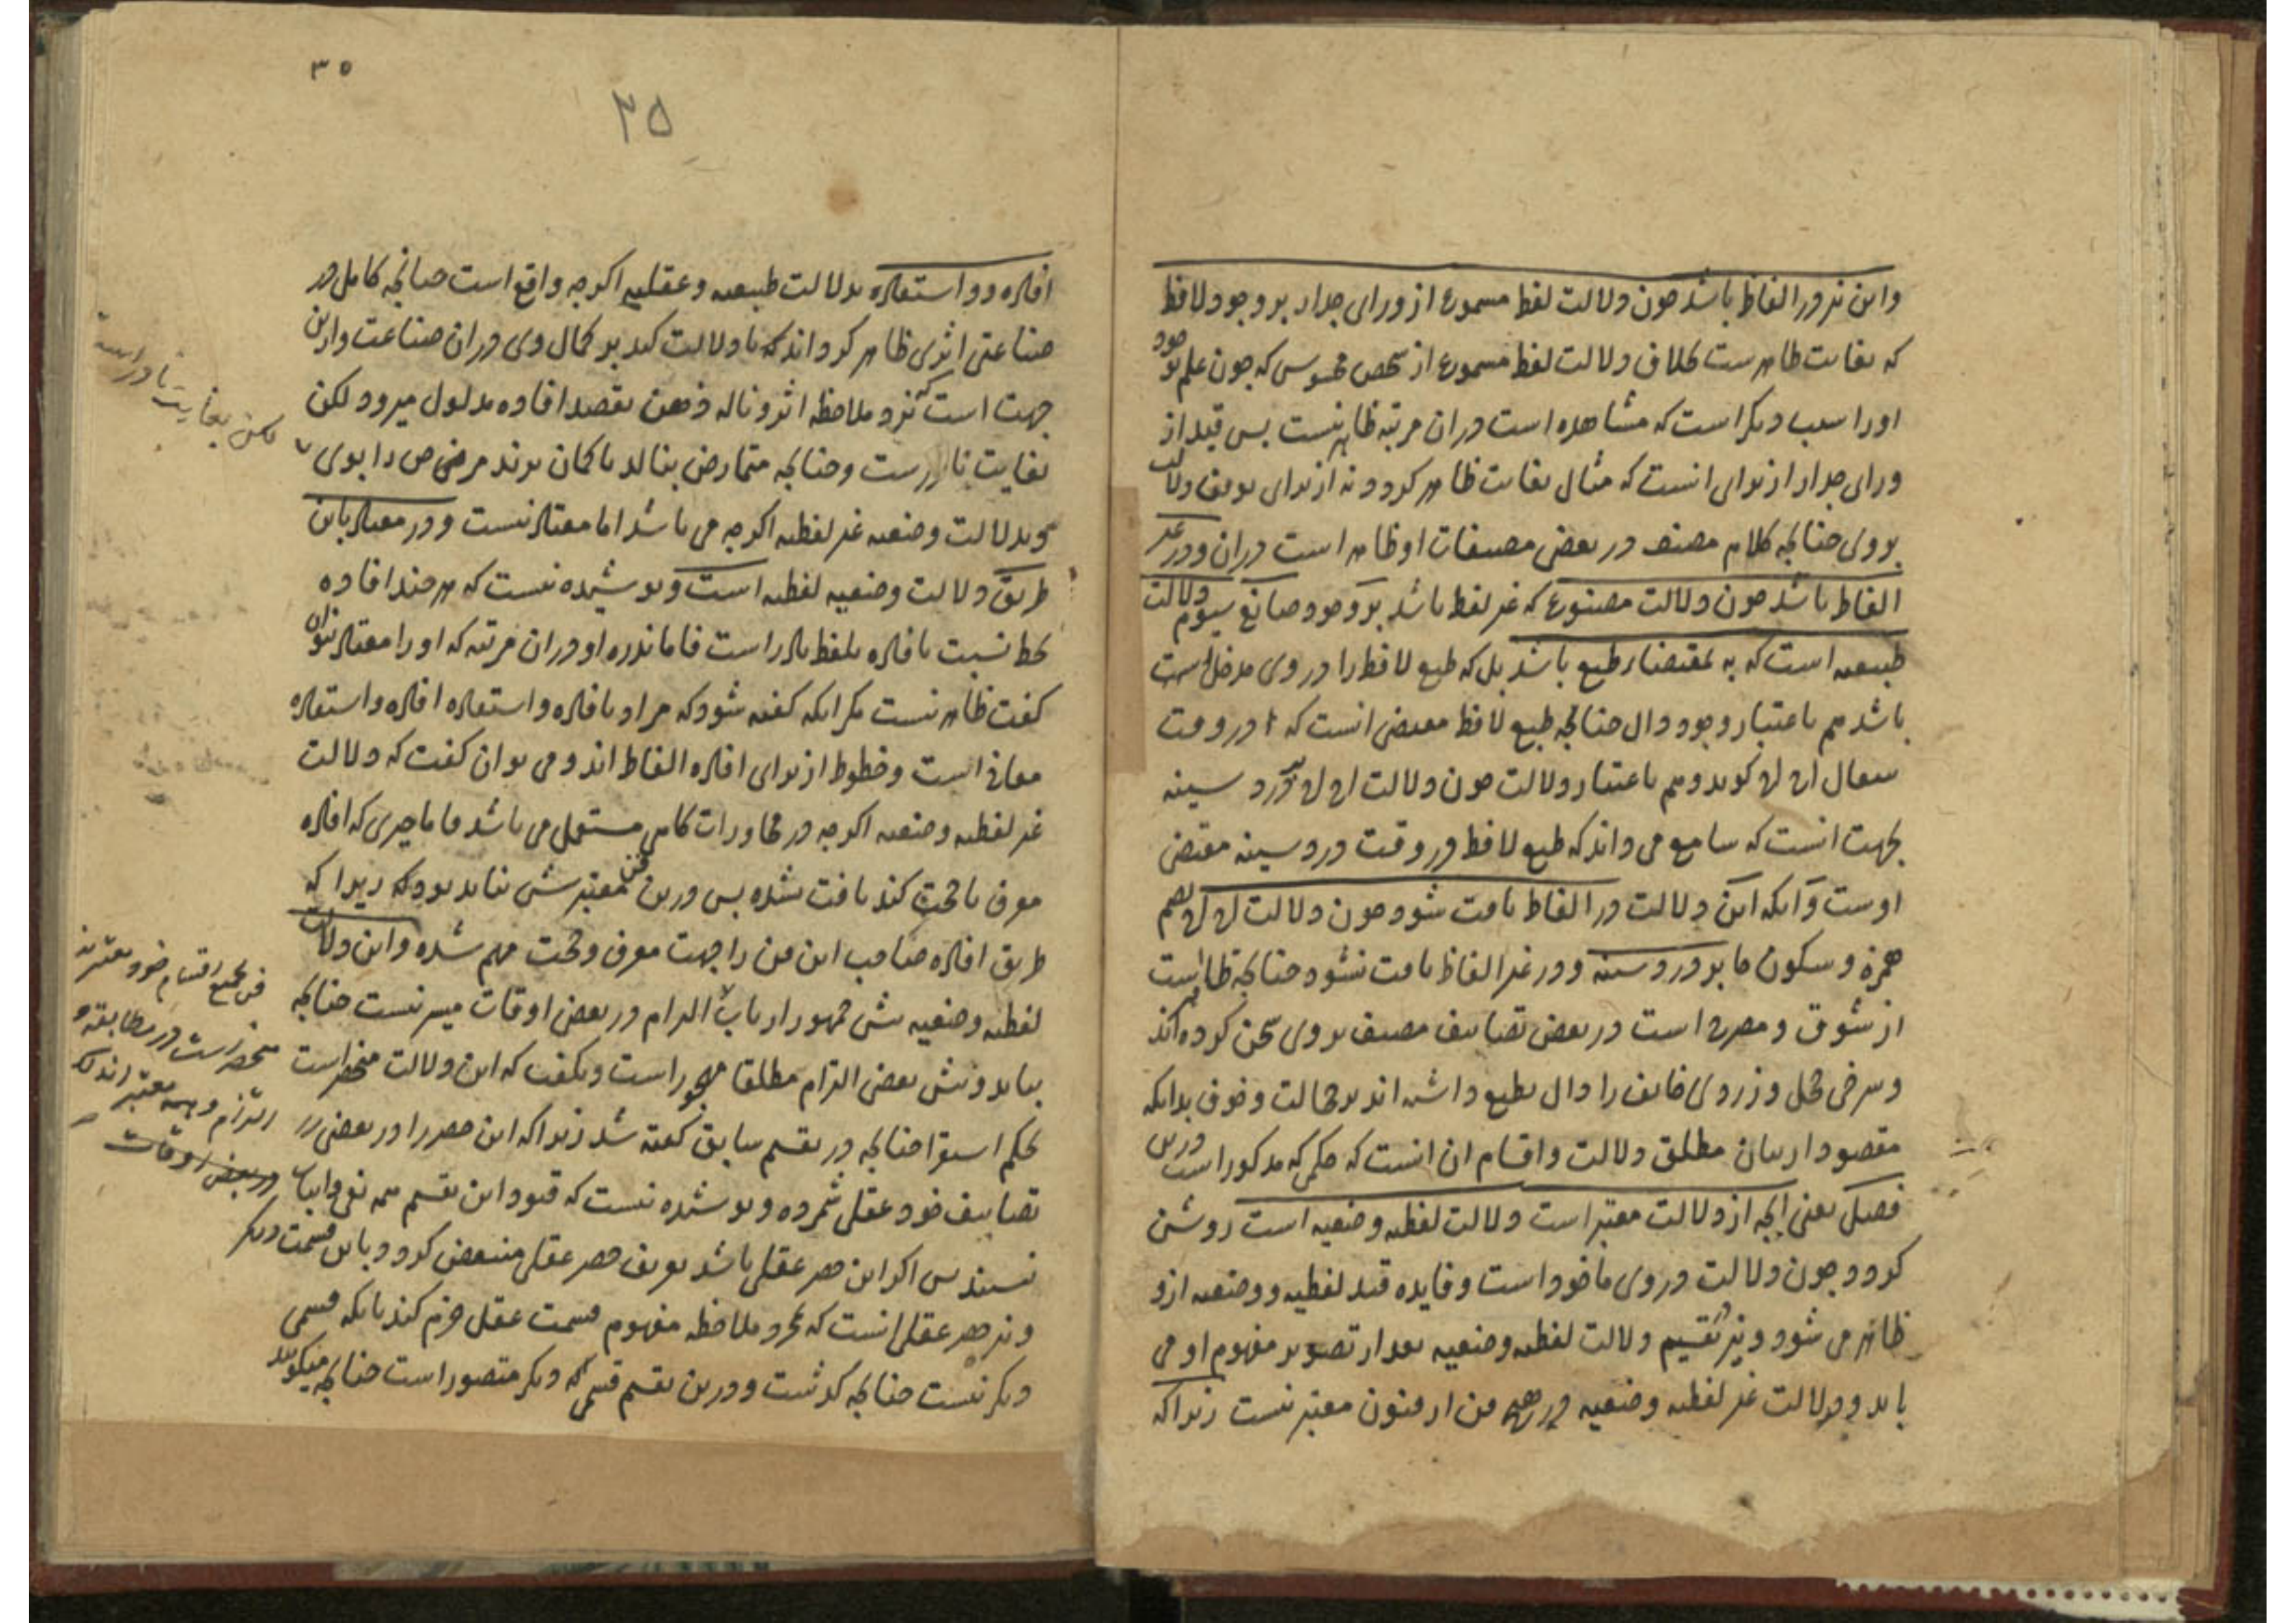 واین نیز در الفاظ باشد چون دلالت لفظ مسموع از ورای جدار بر وجود لافظ
که بغایت ظاهرست بخلاف دلالت لفظ مسموع از شخص محسوس که چون علم بوجود
او را سبب دیگر است که مشاهده است در ان مرتبه ظاهر نیست پس قید از
ورای جدار از برای انست که مثال بغایت ظاهر کردد نه از برای توقف دلالت
بر وی چنانچه کلام مصنف در بعضی مصنفات او ظاهر است در ان ودر غیر
الفاظ باشد چون دلالت مصنوع که غیر لفظ باشد بر وجود صانع سیوم دلالت
طبیعیه است که به مقتضاء طبع باشد بل که طبع لافظ را در وی مدخل است
باشد هم باعتبار وجود دال چنانچه طبع لافظ مقتضی انست که در وقت
سعال اح اح کوید وهم باعتبار دلالت چون دلالت اح اح بر درد سینه
بجهت انست که سامع می داند که طبع لافظ در وقت درد سینه مقتضی
اوست وانکه این دلالت در الفاظ یافت شود چون دلالت اح اح بضم
همزه وسکون حا بر درد سینه ودر غیر الفاظ یافت نشود چنانچه ظاهر است
از سوق ومصرح است در بعضی تصانیف مصنف بر وی سخن کرده اند
وسرخی خجل وزردی خایف را دال بطبع داشته اند بر خجالت وخوف بدانکه
مقصود از بیان مطلق دلالت واقسام ان انست که حکمی که مذکور است درین
فصل یعنی انچه از دلالت معتبر است دلالت لفظیه وضعیه است روشن
کردد چون دلالت در وی ماخوذ است وفایده قید لفظیه ووضعیه ازو
ظاهر می شود ونیز تقسیم دلالت لفظیه وضعیه بعد از تصویر مفهوم او می
باید ودلالت غیر لفظیه وضعیه در هیچ فن از فنون معتبر نیست زیراکه
۳۵
۳۵
افاده و واستفاده بدلالت طبیعیه وعقلیه اکرچه واقع است چنانچه کامل در
صناعتی اثری ظاهر کرداند که تا دلالت کند بر کمال وی در ان صناعت وازین
جهت است که نزد ملاحظه اثر وناله ذهن بقصد افاده مدلول میرود لکن
بغایت نادرست وچنانچه متمارض بنالد تا کمان برند مرضی را بوی
وبدلالت وضعیه غیر لفظیه اکرچه می باشد اما معتاد نیست ودر معتاد باین
طریق دلالت وضعیه لفظیه است وپوشیده نیست که هر چند افاده
بخط نسبت بافاده بلفظ نادر است فاما ندره او در ان مرتبه که او را معتاد نتوان
کفت ظاهر نیست مکر انکه کفته شود که مراد بافاده واستفاده افاده واستفاده
معانی است وخطوط از برای افاده الفاظ اند ومی توان کفت که دلالت
غیر لفظیه وضعیه اکرچه در محاورات کاهی مستعمل می باشد فاما چیزی که افاده
معرف یا حجت کند یافت نشده پس درین فن معتبرش نباید بود که زیرا که
طریق افاده صاحب این فن را جهت معرف وحجت مهم شده واین دلالت
لفظیه وضعیه پیش جمهور ارباب الزام در بعض اوقات میسر نیست چنانچه
بیاید وپیش بعضی التزام مطلقا مهجور است وبکفت که این دلالت منحصر است
بحکم استقرا چنانچه در تقسیم سابق کفته شد زیراکه این حصر را در بعضی
تصانیف خود عقلی شمرده وپوشیده نیست که قیود این تقسیم همه نفی واثبات
نیستند پس اکر این حصر عقلی باشد تعریف حصر عقلی منتقض کردد وباین قسمت دیکر
ونیز حصر عقلی انست که بمجرد ملاحظه مفهوم قسمت عقل جزم کند بانکه قسمی
دیکر نیست چنانچه کذشت ودرین تقسیم قسمی که دیکر متصور است چنانچه میکوید
لکن بغایت نادر است
فن بجمیع اقسام خود معتبر نیست
منحصر است در مطابقه و
التزام وهمه معتبر اند
در بعض اوقات